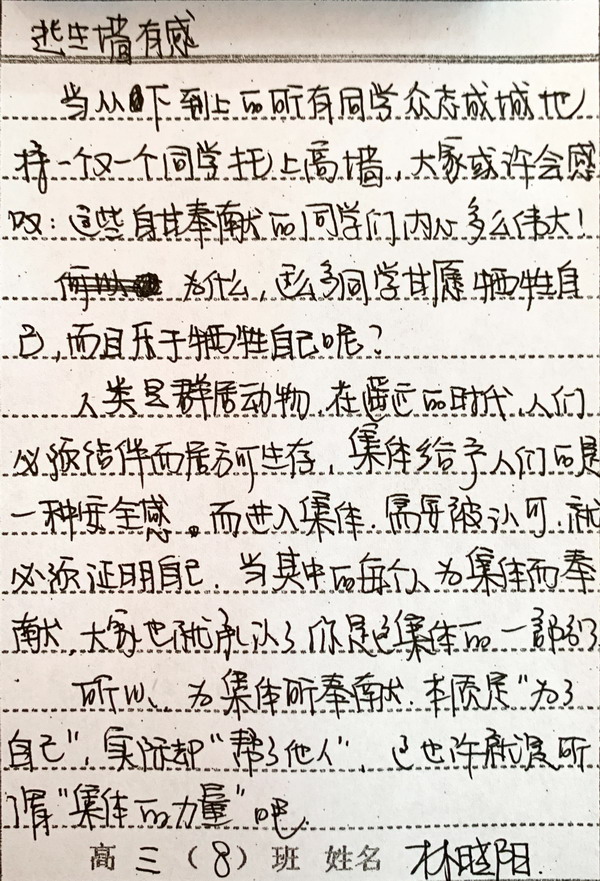 逃生墙有感
当从下到上的所有同学众志成城地
将一个又一个同学托上高墙,大家或许会感
叹:这些自甘奉献的同学们内心多么伟大!
为什么,这么多同学甘愿牺牲自
己,而且乐于牺牲自己呢?
人类是群居动物,在遥远的时代,人们
必须结伴而居方可生存,集体给予人们的是
一种安全感。而进入集体,需要被认可,就
必须证明自己,当其中的每个人为集体而奉
献,大家也就承认了你是这集体的一部分
所以、为集体所奉献,本质是“为了
自己”,实际却“帮了他人”,这也许就是所
谓“集体的力量”吧.
高 三 (8) 班 姓名 林晓阳.